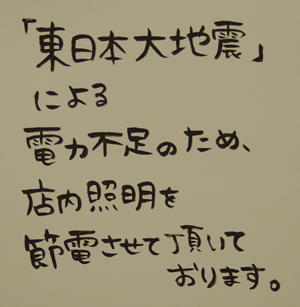 「東日本大地震」
による
電力不足のため、
店内照明を
節電させて頂いて
おります。